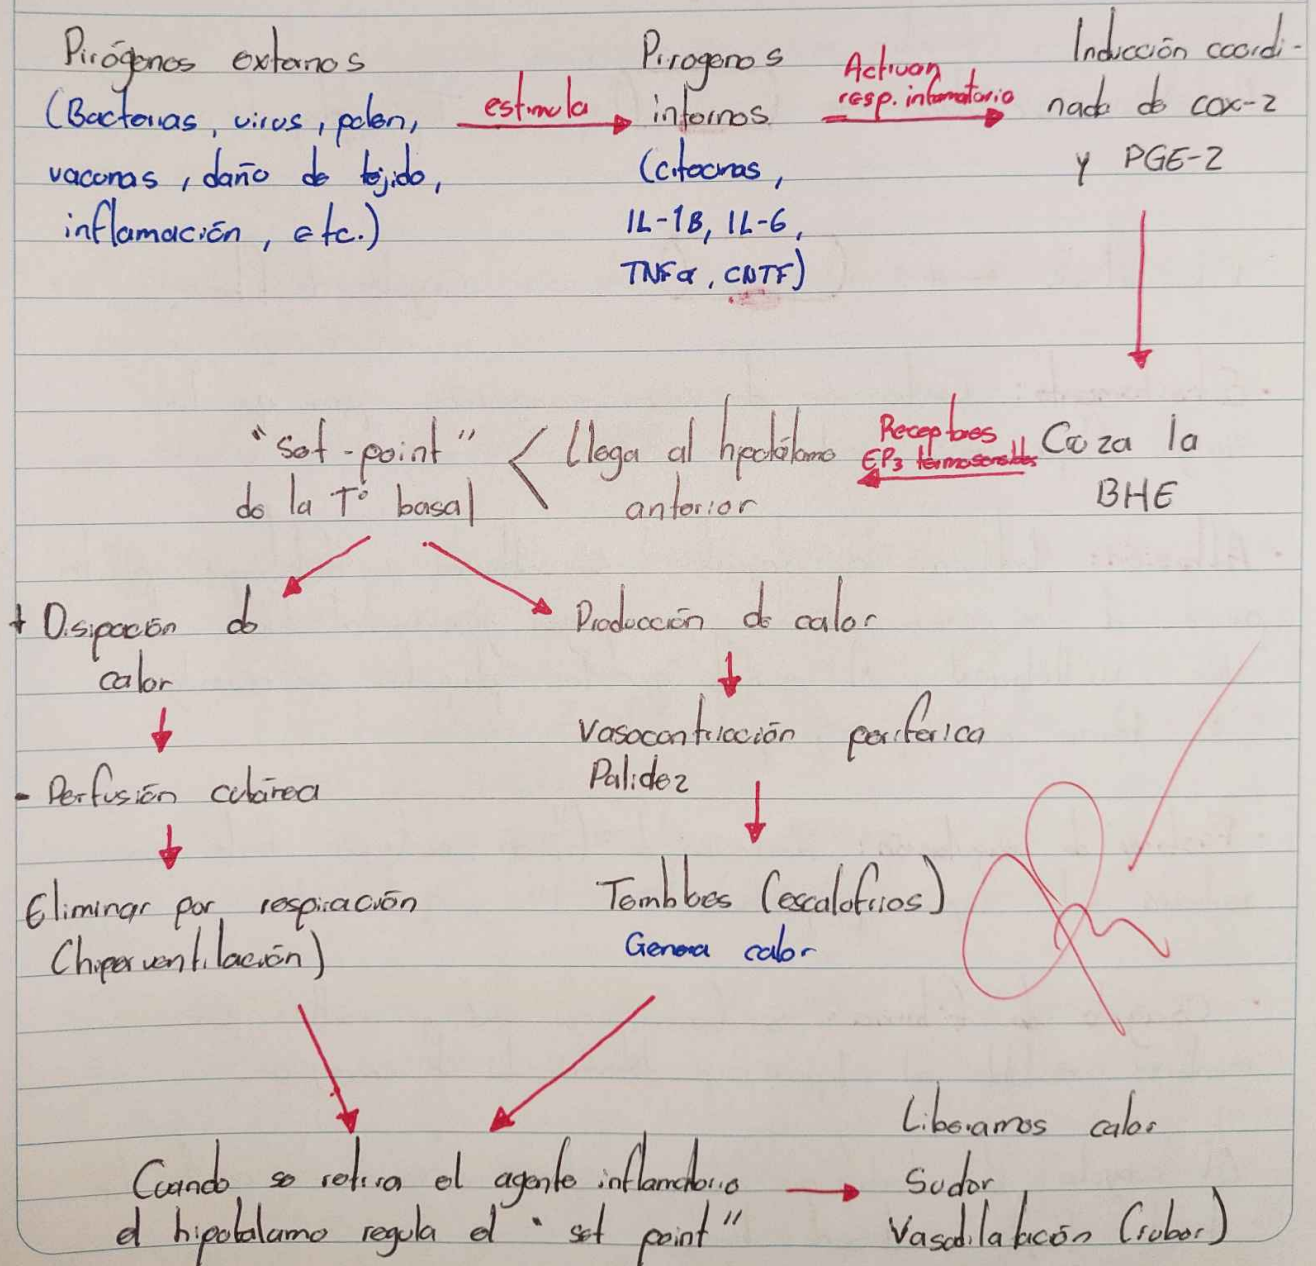 Pirógenos externos
(Bacterias, virus, polen,
vacunas, daño de tejido,
inflamación, etc.)
estimula
Pirogenos
internos
(citocinas,
IL-1B, IL-6,
TNFα, CNTF)
Activan
resp. inflamatoria
Inducción coordi-
nada de cox-2
y PGE-2
Cruza la
BHE
Receptores
EP3 termosensibles
Llega al hipotálamo
anterior
<
"set-point"
de la T° basal
+ Disipación de
calor
- Perfusión cutánea
Eliminar por respiración
(hiperventilación)
Producción de calor
Vasocontricción periferica
Palidez
Temblores (escalofrios)
Genera calor
Cuando se retira el agente inflamatorio
el hipotalamo regula el "set point"
Liberamos calor
Sudor
Vasodilatación (rubor)